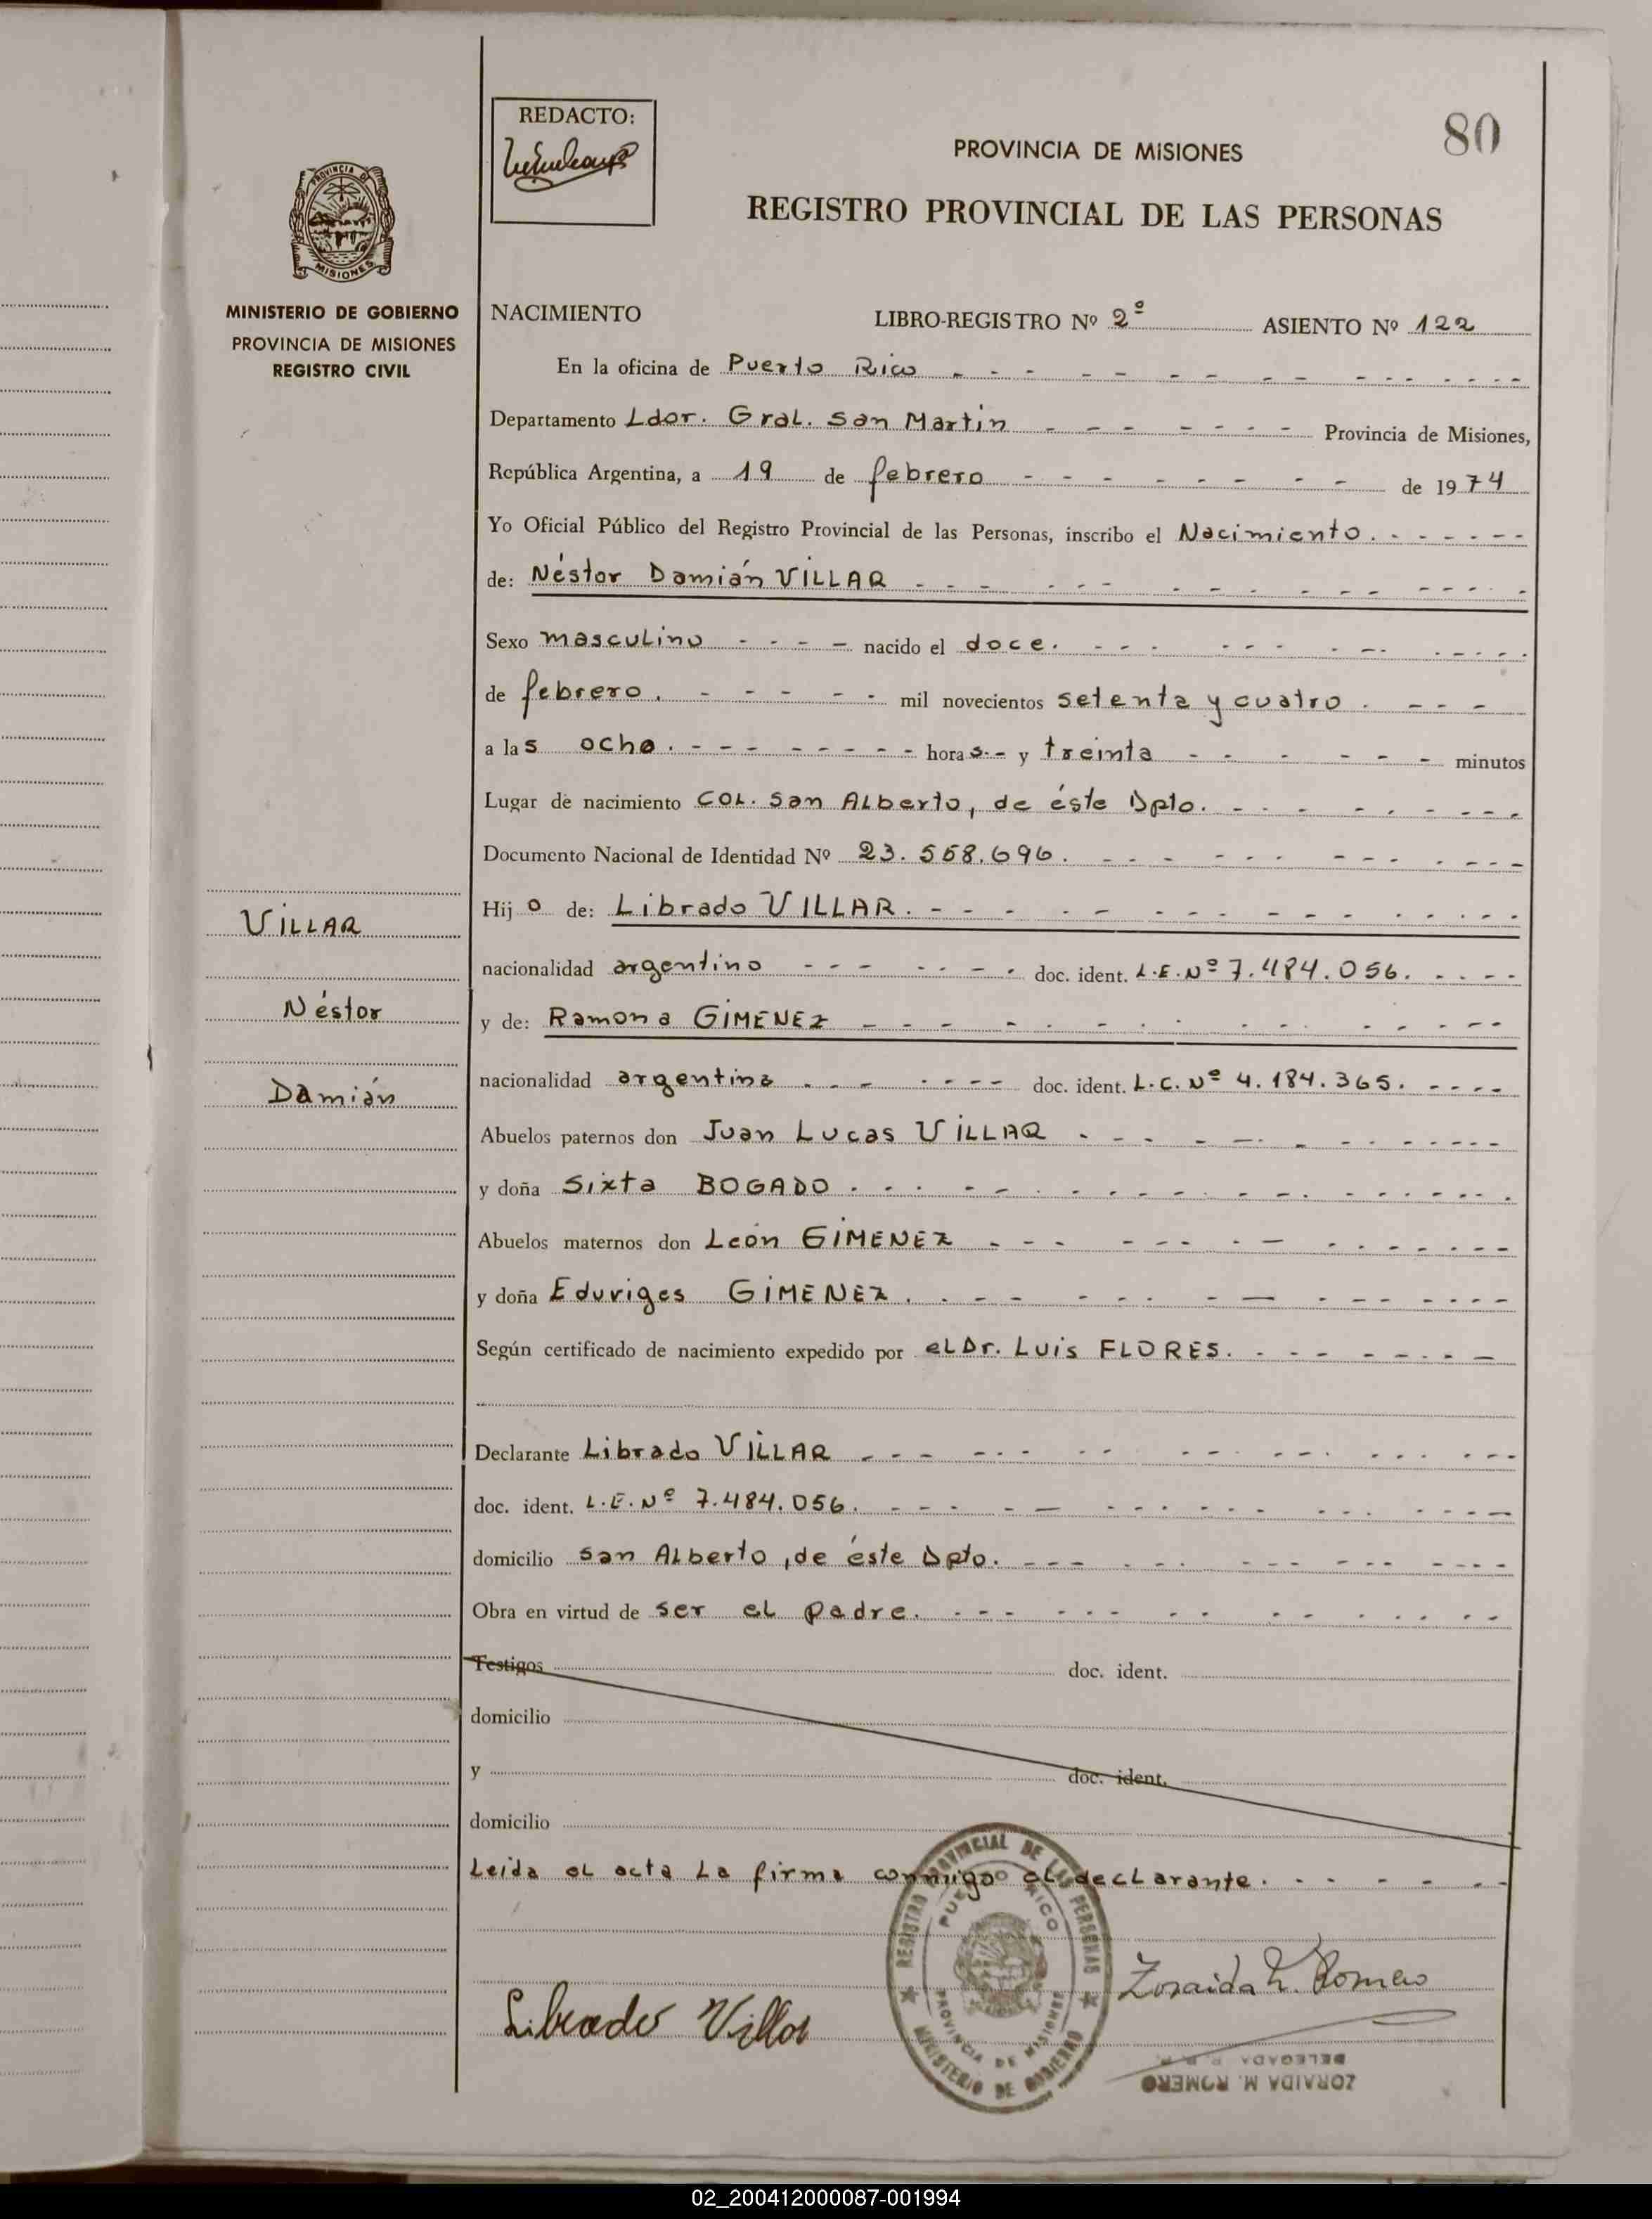 REDACTO:
80
PROVINCIA DE MISIONES
REGISTRO PROVINCIAL DE LAS PERSONAS
PROVINCIA DE
MISIONES
MINISTERIO DE GOBIERNO
PROVINCIA DE MISIONES
REGISTRO CIVIL
NACIMIENTO LIBRO-REGISTRO Nº 2º ASIENTO Nº 122
En la oficina de Puerto Rico
Departamento Ldor. Gral. San Martín Provincia de Misiones,
República Argentina, a 19 de febrero de 1974
Yo Oficial Público del Registro Provincial de las Personas, inscribo el Nacimiento.
de: Néstor Damián VILLAR
Sexo masculino nacido el doce.
de febrero. mil novecientos setenta y cuatro.
a las ocho. horas y treinta minutos
Lugar de nacimiento COL. San Alberto, de éste Dpto.
Documento Nacional de Identidad Nº 23.558.696.
Hijo de: Librado VILLAR.
nacionalidad argentino doc. ident. L.E. Nº 7.484.056.
y de: Ramona GIMENEZ
nacionalidad argentina doc. ident. L.C. Nº 4.184.365.
Abuelos paternos don Juan Lucas VILLAR
y doña Sixta BOGADO.
Abuelos maternos don León GIMENEZ
y doña Eduviges GIMENEZ.
Según certificado de nacimiento expedido por el Dr. Luis FLORES.
Declarante Librado VILLAR
doc. ident. L.E. Nº 7.484.056.
domicilio San Alberto, de éste Dpto.
Obra en virtud de ser el padre.
Testigos doc. ident.
domicilio
y doc. ident.
domicilio
Leida el acta la firma conmigo el declarante.
VILLAR
Néstor
Damián
REGISTRO PROVINCIAL DE LAS PERSONAS
PUERTO RICO
PROVINCIA DE MISIONES
MINISTERIO DE GOBIERNO
Librado Villar
Zoraida M. Romero
ZORAIDA M. ROMERO
DELEGADA R. P. P.
02_200412000087-001994